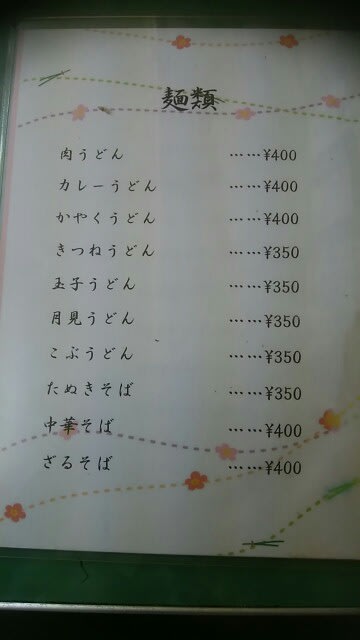 麺類
肉うどん ……¥400
カレーうどん ……¥400
かやくうどん ……¥400
きつねうどん ……¥350
玉子うどん ……¥350
月見うどん ……¥350
こぶうどん ……¥350
たぬきそば ……¥350
中華そば ……¥400
ざるそば ……¥400